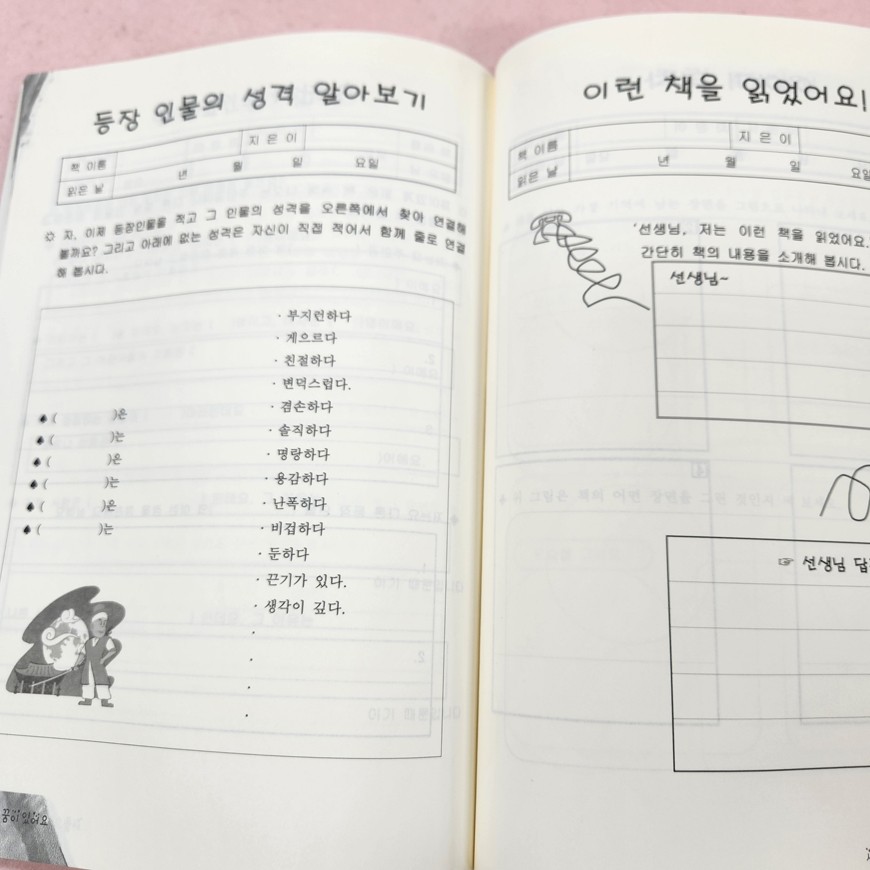 등장 인물의 성격 알아보기
책 이름 지 은 이
읽은 날 년 월 일 요일
✡ 자, 이제 등장인물을 적고 그 인물의 성격을 오른쪽에서 찾아 연결해
볼까요? 그리고 아래에 없는 성격은 자신이 직접 적어서 함께 줄로 연결
해 봅시다.
· 부지런하다
· 게으르다
· 친절하다
· 변덕스럽다.
· 겸손하다
· 솔직하다
· 명랑하다
· 용감하다
· 난폭하다
· 비겁하다
· 둔하다
· 끈기가 있다.
· 생각이 깊다.
·
·
·
·
♠ ( )은
♠ ( )는
♠ ( )은
♠ ( )는
♠ ( )은
♠ ( )는
꿈이 있어요
이런 책을 읽었어요!
책 이름 지 은 이
읽은 날 년 월 일 요일
'선생님, 저는 이런 책을 읽었어요.
간단히 책의 내용을 소개해 봅시다.
선생님~
☞ 선생님 답